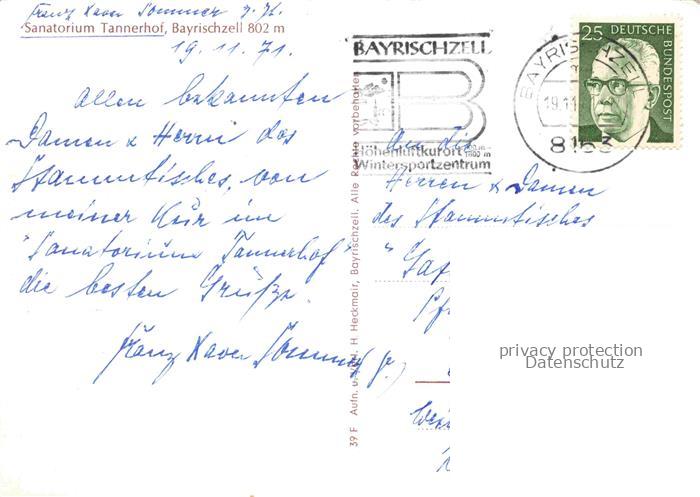 Franz Xaver Sommer z. Zt.
Sanatorium Tannerhof, Bayrischzell 802 m
19. 11. 71.
allen bekannten
Damen & Herrn des
Stammtisches, von
meiner Kur im
"Sanatorium Tannerhof"
die besten Grüße
Franz Xaver Sommer
39 F Aufn. u. H. Heckmair, Bayrischzell. Alle Rechte vorbehalten
BAYRISCHZELL
B
Höhenluftkurort
Wintersportzentrum
BAYRISCHZELL
19.11
8163
25 DEUTSCHE
BUNDESPOST
An die
Herren & Damen
des Stammtisches
privacy protection
Datenschutz